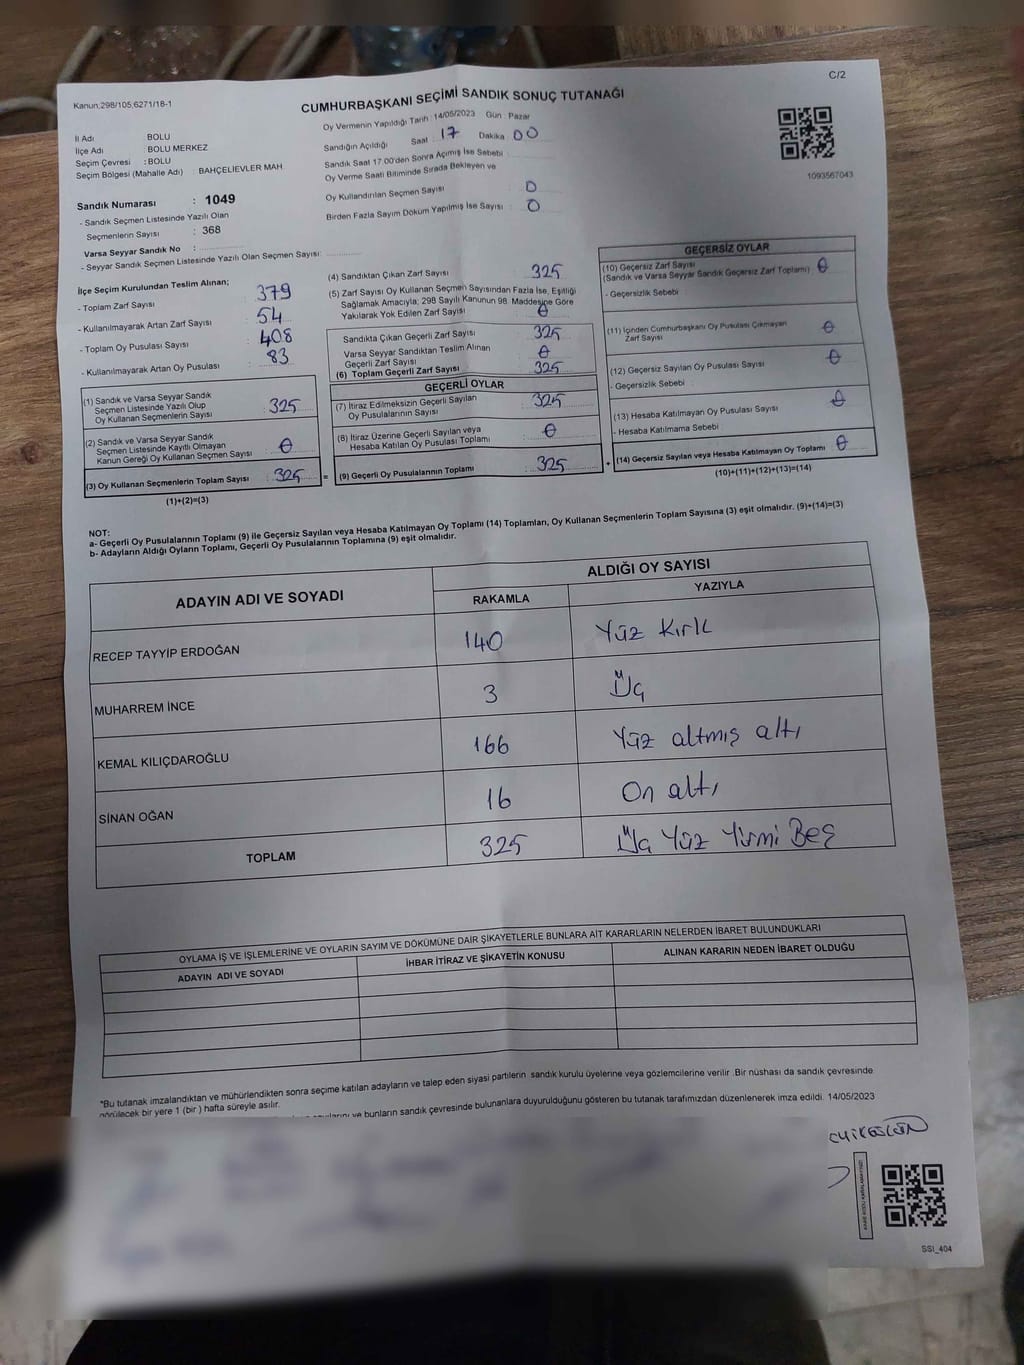 C/2
Kanun;298/105,6271/18-1
CUMHURBAŞKANI SEÇİMİ SANDIK SONUÇ TUTANAĞI
İl Adı : BOLU
İlçe Adı : BOLU MERKEZ
Seçim Çevresi : BOLU
Seçim Bölgesi (Mahalle Adı) : BAHÇELİEVLER MAH.
Sandık Numarası : 1049
- Sandık Seçmen Listesinde Yazılı Olan
Seçmenlerin Sayısı : 368
Varsa Seyyar Sandık No :
- Seyyar Sandık Seçmen Listesinde Yazılı Olan Seçmen Sayısı:
Oy Vermenin Yapıldığı Tarih : 14/05/2023 Gün : Pazar
Sandığın Açıldığı Saat : 17 Dakika 00
Sandık Saat 17.00'den Sonra Açımış İse Sebebi :
Oy Verme Saati Bitiminde Sırada Bekleyen ve
Oy Kullandırılan Seçmen Sayısı : 0
Birden Fazla Sayım Döküm Yapılmış İse Sayısı : 0
1093567043
İlçe Seçim Kurulundan Teslim Alınan;
- Toplam Zarf Sayısı : 379
- Kullanılmayarak Artan Zarf Sayısı : 54
- Toplam Oy Pusulası Sayısı : 408
- Kullanılmayarak Artan Oy Pusulası : 83
(1) Sandık ve Varsa Seyyar Sandık
Seçmen Listesinde Yazılı Olup
Oy Kullanan Seçmenlerin Sayısı : 325
(2) Sandık ve Varsa Seyyar Sandık
Seçmen Listesinde Kayıtlı Olmayan
Kanun Gereği Oy Kullanan Seçmen Sayısı : 0
(3) Oy Kullanan Seçmenlerin Toplam Sayısı : 325 =
(1)+(2)=(3)
(4) Sandıktan Çıkan Zarf Sayısı : 325
(5) Zarf Sayısı Oy Kullanan Seçmen Sayısından Fazla İse, Eşitliği
Sağlamak Amacıyla; 298 Sayılı Kanunun 98. Maddesine Göre
Yakılarak Yok Edilen Zarf Sayısı : 0
Sandıkta Çıkan Geçerli Zarf Sayısı : 325
Varsa Seyyar Sandıktan Teslim Alınan
Geçerli Zarf Sayısı : 0
(6) Toplam Geçerli Zarf Sayısı : 325
GEÇERLİ OYLAR
(7) İtiraz Edilmeksizin Geçerli Sayılan
Oy Pusulalarının Sayısı : 325
(8) İtiraz Üzerine Geçerli Sayılan veya
Hesaba Katılan Oy Pusulası Toplamı : 0
(9) Geçerli Oy Pusulalarının Toplamı : 325 +
GEÇERSİZ OYLAR
(10) Geçersiz Zarf Sayısı
(Sandık ve Varsa Seyyar Sandık Geçersiz Zarf Toplamı) : 0
- Geçersizlik Sebebi :
(11) İçinden Cumhurbaşkanı Oy Pusulası Çıkmayan
Zarf Sayısı : 0
(12) Geçersiz Sayılan Oy Pusulası Sayısı : 0
- Geçersizlik Sebebi :
(13) Hesaba Katılmayan Oy Pusulası Sayısı : 0
- Hesaba Katılmama Sebebi :
(14) Geçersiz Sayılan veya Hesaba Katılmayan Oy Toplamı : 0
(10)+(11)+(12)+(13)=(14)
NOT:
a- Geçerli Oy Pusulalarının Toplamı (9) ile Geçersiz Sayılan veya Hesaba Katılmayan Oy Toplamı (14) Toplamları, Oy Kullanan Seçmenlerin Toplam Sayısına (3) eşit olmalıdır. (9)+(14)=(3)
b- Adayların Aldığı Oyların Toplamı, Geçerli Oy Pusulalarının Toplamına (9) eşit olmalıdır.
ADAYIN ADI VE SOYADI
ALDIĞI OY SAYISI
RAKAMLA YAZIYLA
RECEP TAYYİP ERDOĞAN 140 Yüz Kırk
MUHARREM İNCE 3 Üç
KEMAL KILIÇDAROĞLU 166 Yüz altmış altı
SİNAN OĞAN 16 On altı
TOPLAM 325 Üç Yüz Yirmi Beş
OYLAMA İŞ VE İŞLEMLERİNE VE OYLARIN SAYIM VE DÖKÜMÜNE DAİR ŞİKAYETLERLE BUNLARA AİT KARARLARIN NELERDEN İBARET BULUNDUKLARI
ADAYIN ADI VE SOYADI İHBAR İTİRAZ VE ŞİKAYETİN KONUSU ALINAN KARARIN NEDEN İBARET OLDUĞU
*Bu tutanak imzalandıktan ve mühürlendikten sonra seçime katılan adayların ve talep eden siyasi partilerin sandık kurulu üyelerine veya gözlemcilerine verilir .Bir nüshası da sandık çevresinde
görülecek bir yere 1 (bir ) hafta süreyle asılır.
ve bunların sandık çevresinde bulunanlara duyurulduğunu gösteren bu tutanak tarafımızdan düzenlenerek imza edildi. 14/05/2023
SSI_404